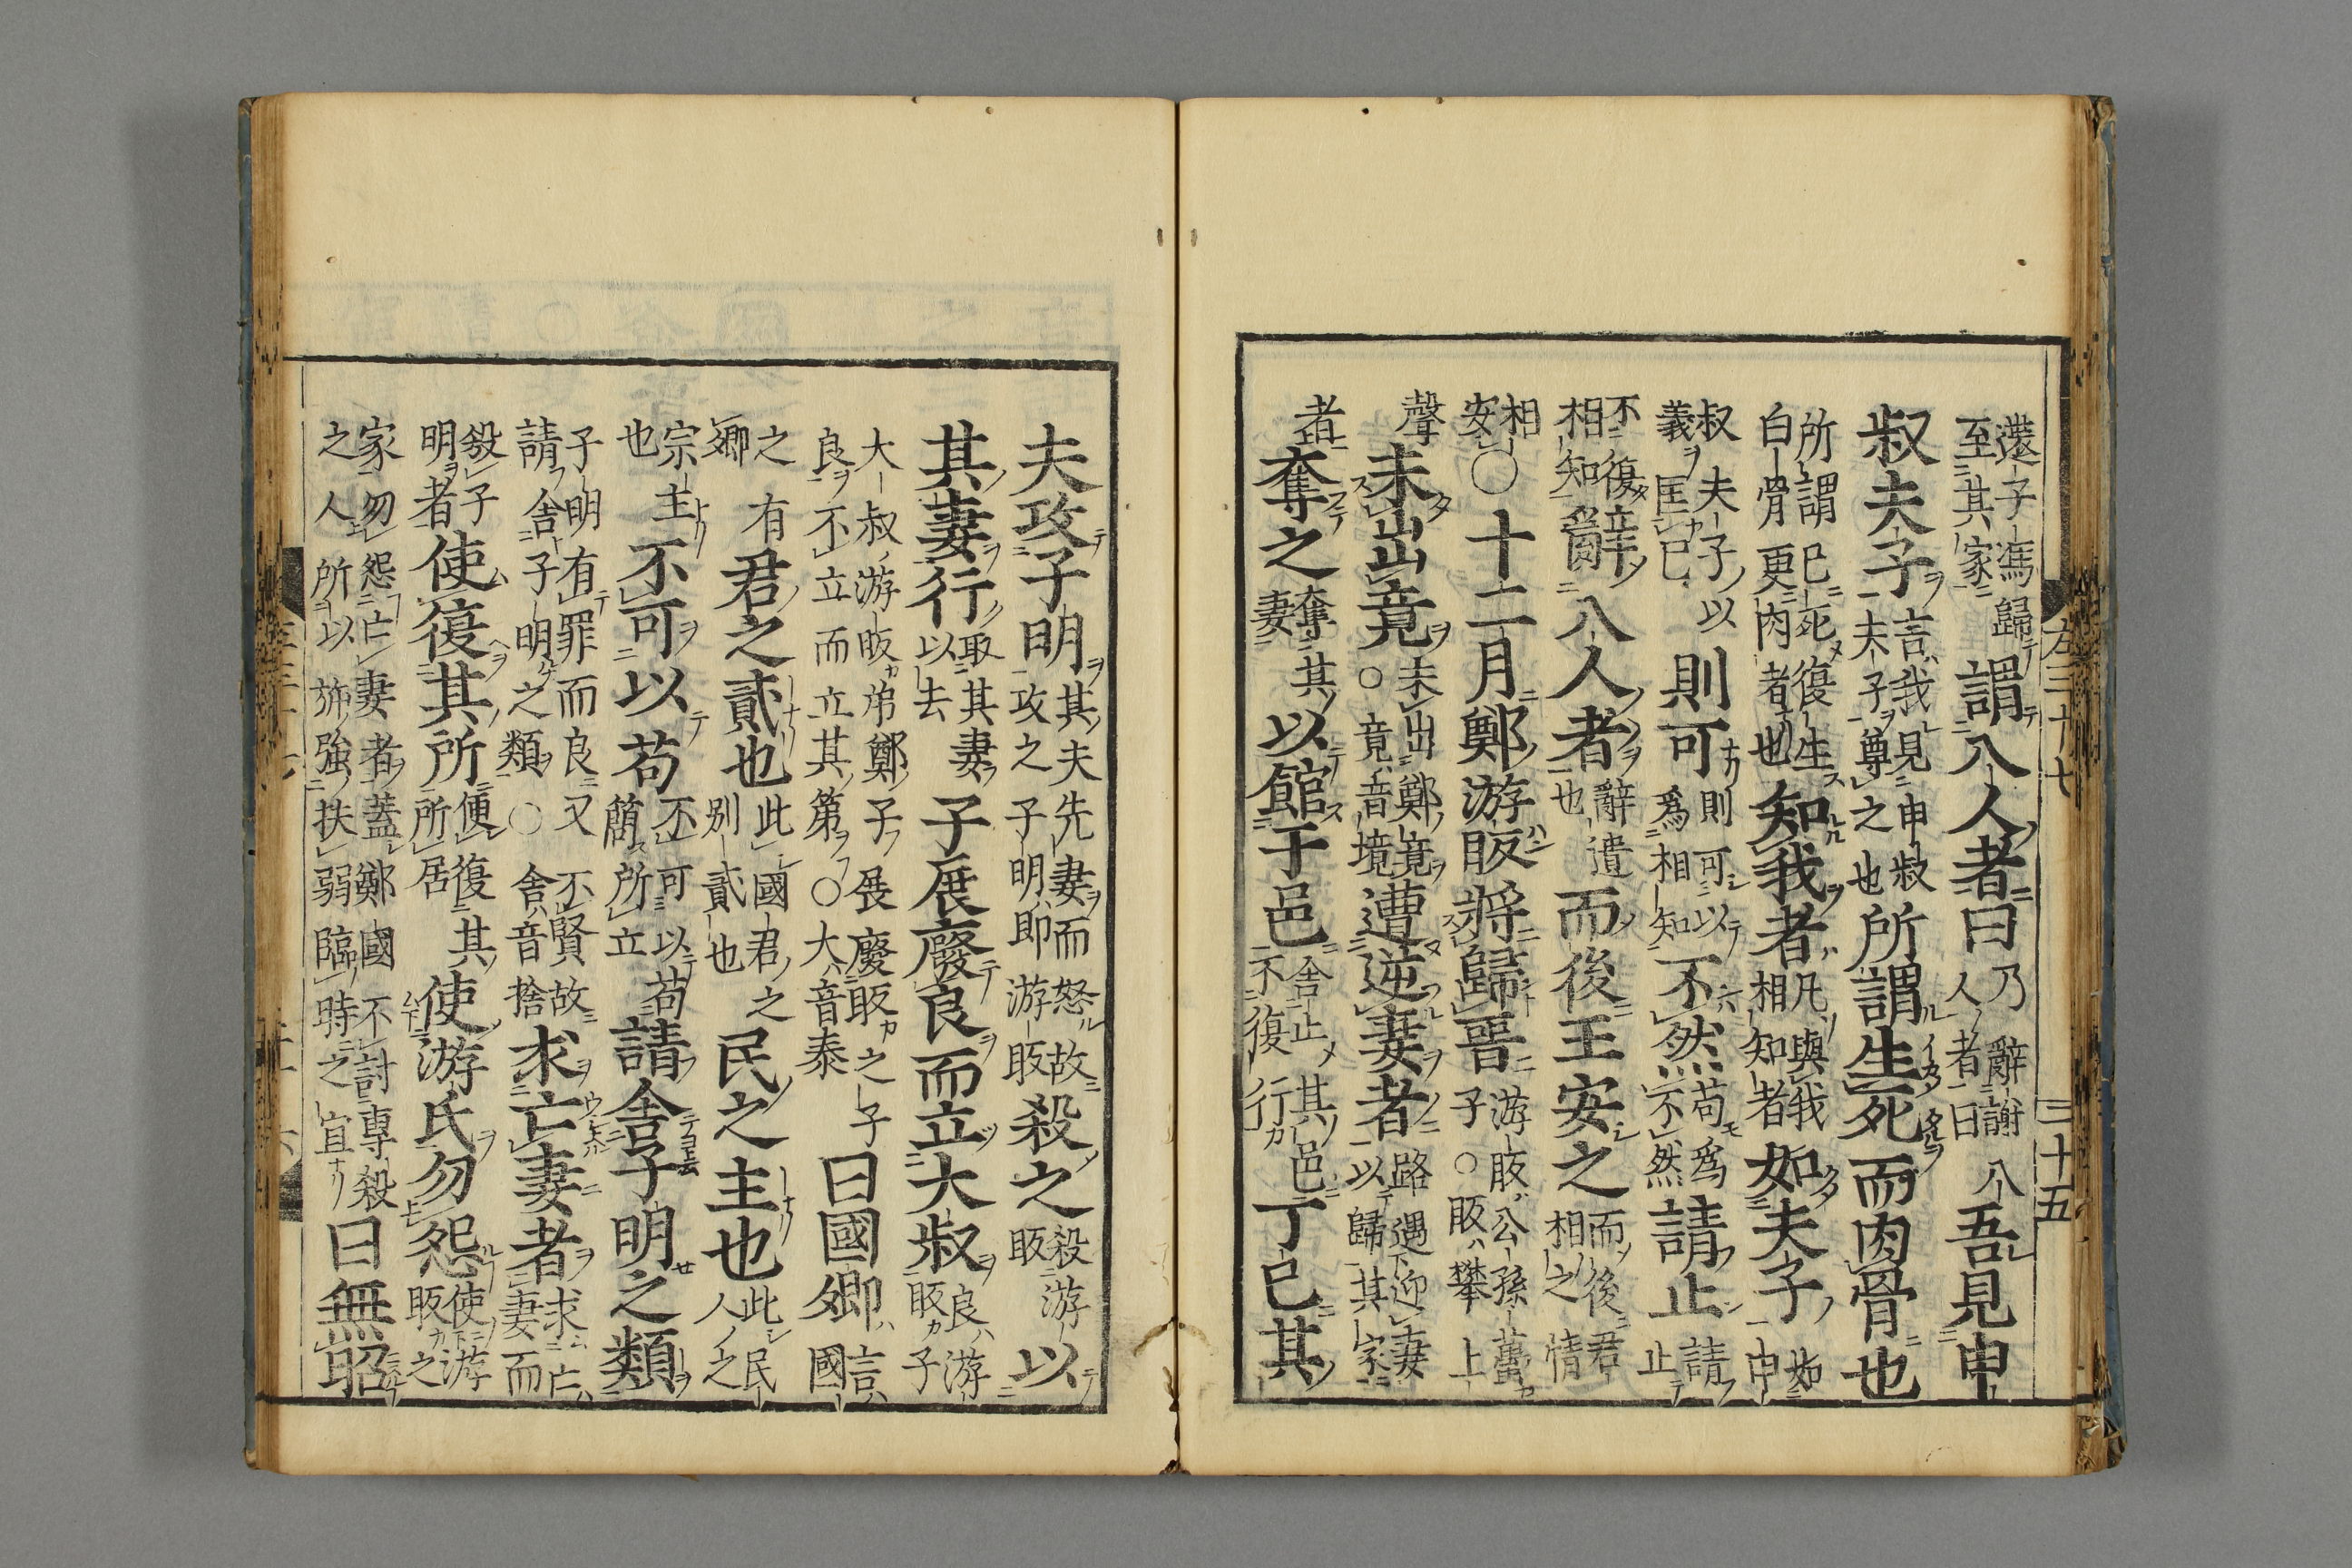 左三十七　三十五
還子馮歸至其家謂八人者曰乃辭謝八人者曰吾見申
叔夫子言我見申叔夫子尊之也所謂生死而肉骨也
所謂巳死復生白骨更肉者也知我者凡與我相知者如夫子如申
叔夫子以義匡巳則可則可以爲相知不然苟爲不然請止請止
不復相知辭八人者辭遣也而後王安之而後君相之情
相安〇十二月鄭游眅將歸晉游眅公孫蠆子○眅攀上
聲未出竟未出鄭竟○竟音境遭逆妻者路遇迎妻以歸其家
者奪之奪其妻以館于邑舍止其邑不復行丁巳其
夫攻子明其夫先妻而怒故攻之子明即游眅殺之殺游眅以
其妻行取其妻以去子展廢良而立大叔良游眅子
大叔游眅弟鄭子展廢眅之子良不立而立其第〇大音泰曰國卿言國
之卿有君之貳也此國君之別貳也民之主也此民人之
宗主也不可以苟不可以苟簡所立請舍子明之類
子明有罪而良又不賢故請舍子明之類〇舍音捨求亡妻者求亡妻而
殺子明者使復其所便復其所居使游氏勿怨使游眅之
家勿怨亡妻者蓋鄭國不討專殺之人所以斾強扶弱臨時之宜曰無昭